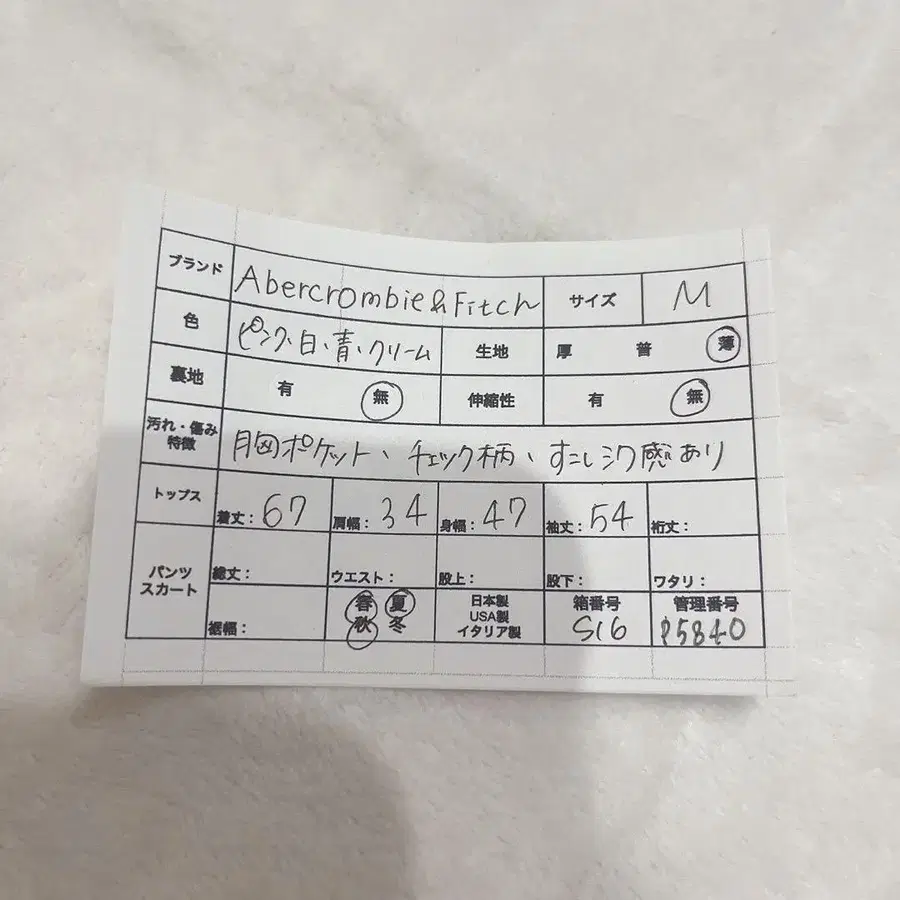 ブランド Abercrombie & Fitch サイズ M
色 ピンク、白、青、クリーム 生地 厚 普 薄
裏地 有 無 伸縮性 有 無
汚れ・傷み
特徴 胸ポケット、チェック柄、すこしシワ感あり
トップス 着丈：67 肩幅：34 身幅：47 袖丈：54 裄丈：
パンツ
スカート 総丈： ウエスト： 股上： 股下： ワタリ：
裾幅： 春 夏 秋 冬 日本製 USA製 イタリア製 箱番号 S16 管理番号 P5840